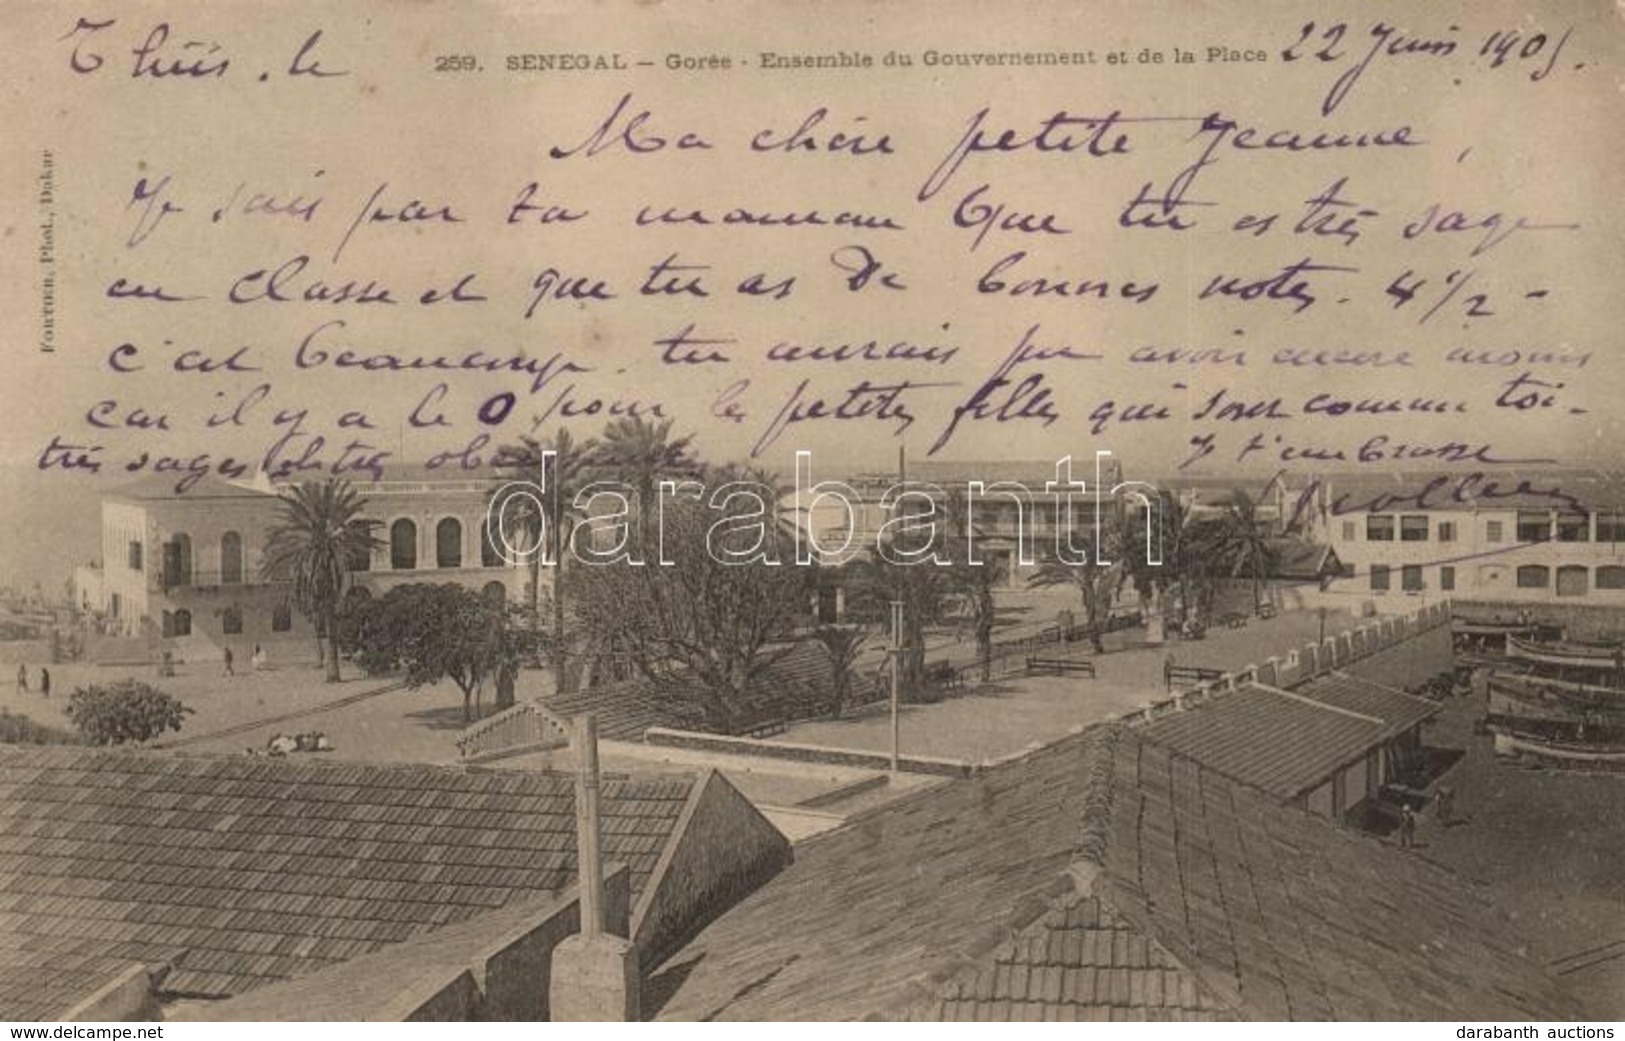 Thiès, le
259. SENEGAL — Gorée - Ensemble du Gouvernement et de la Place
22 Juin 1905.
FORTIER, Phot., Dakar
Ma chère petite Jeanne,
Je sais par ta maman que tu es très sage
en classe et que tu as de bonnes notes. 4 1/2 -
c'est beaucoup. tu aurais pu avoir encore moins
car il y a le 0 pour les petites filles qui sont comme toi -
très sages et très
Je t'embrasse
darabanth
www.delcampe.net
darabanth auctions